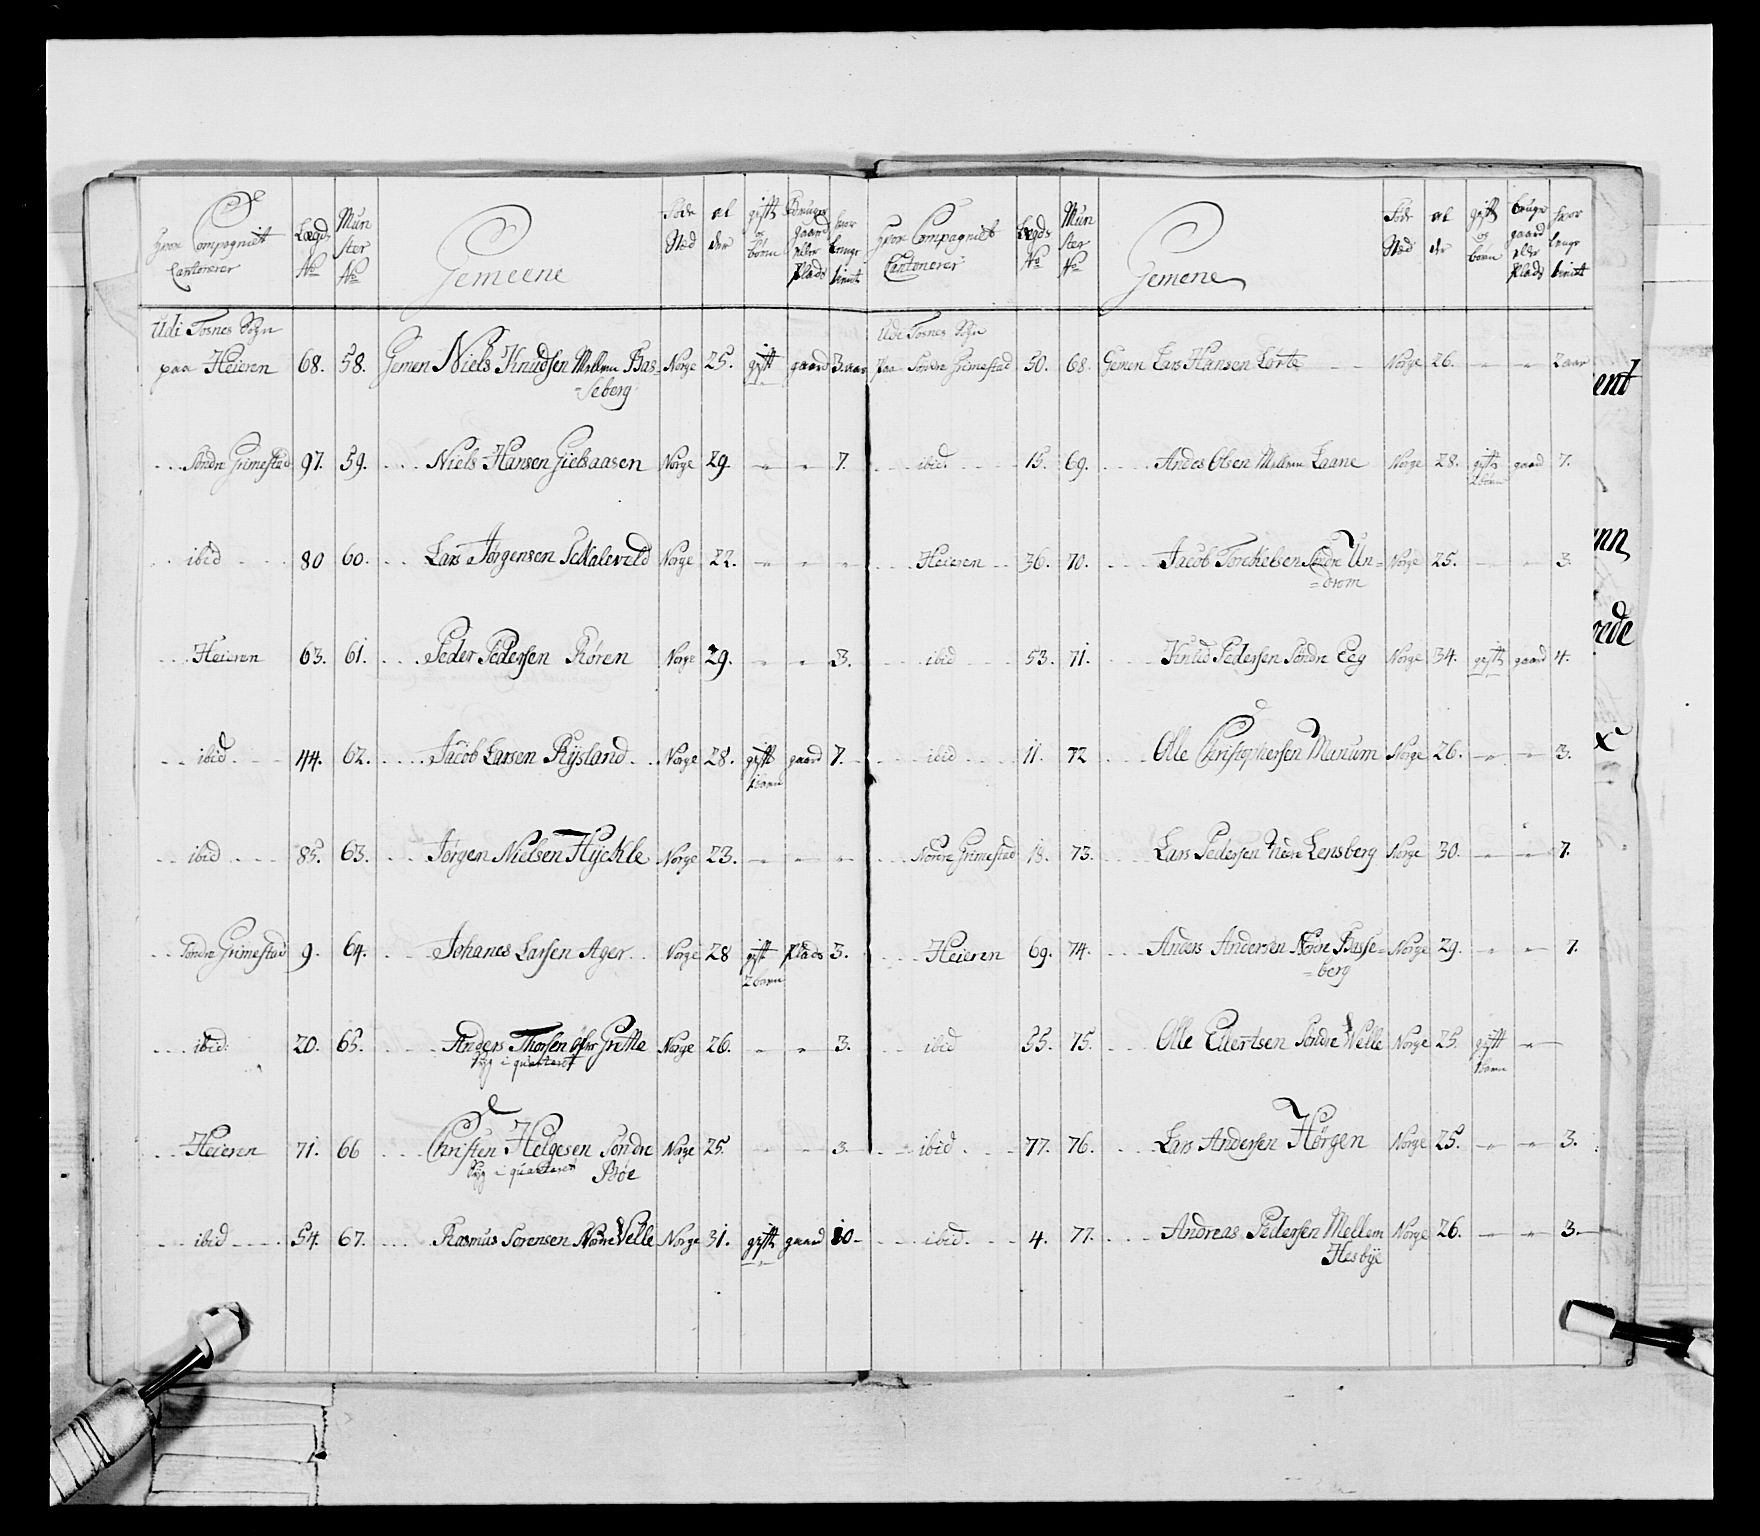 Hvor Compagniet Cantonerer | Lægds No | Mun ster No | Gemeene | Føde Stæd | al der | gift og børn | Bruger gaard eller Plads | hvor lenge tient
Udi Tosnes Sogn
paa Heieren 68. 58. Gemen Niels Knudsen Mellem Bas- Norge 25. gift gaard 3. aar
=seberg
Søndre Grimestad 97. 59. Niels Hansen Gielsaasen Norge 29 - - 7.
ibid 80 60. Lars Jørgensen Norge 22. - - -
Heieren 63. 61. Peder Pedersen Røren Norge 29. - - 3.
ibid. 44. 62. Jacob Larsen Rysland Norge 28. gift gaard 7.
1 barn
ibid 85. 63. Jørgen Nielsen Hyckle Norge 23. - - -
Søndre Grimestad 9. 64. Johanes Larsen Ager Norge 28 gift Plads 3.
2 børn
ibid. 20. 65. Anders Thorsen Norge 26. - - 3.
Syg i quarteret
Heieren 71. 66 Christen Helgesen Søndre Norge 25. - - 3.
Syg i quarteret Bøe
ibid 54. 67. Rasmus Sørensen Nordre Velle Norge 31. gift gaard 10
Hvor Compagniet Cantonerer | Lægds No | Mun ster No | Gemene | Føde Stæd | al der | gift og børn | bruger gaard eller Plads | hvor lenge tient
Udi Tosnes Sogn
Paa Søndre Grimestad 50. 68. Gemen Lars Hansen Lørte Norge 26. - - 2 aar
ibid. 15. 69. Andes Olsen Mellem Laane Norge 28. gift gaard 7.
2 børn
Heieren 36. 70. Jacob Torckelsen Søndre Un= Norge 25. - - 3.
=drom
ibid 53. 71. Knud Pedersen Søndre Eeg Norge 34. gift gaard 4.
ibid 11. 72 Olle Christophersen Manum Norge 26. - - 3.
Nordre Grimestad 18. 73. Lars Pedersen Nedre Lensberg Norge 30. - - 7.
Heieren 69. 74. Anders Andersen Nordre Basse= Norge 29. - - 7.
=berg
ibid 55. 75. Olle Ellertsen Søndre Welle Norge 25. gift -
1 barn
ibid 77. 76. Lars Andersen Hørgen Norge 25. - - 3.
ibid. 4. 77. Andreas Pedersen Mellem Norge 26. - - 3.
Hesbye